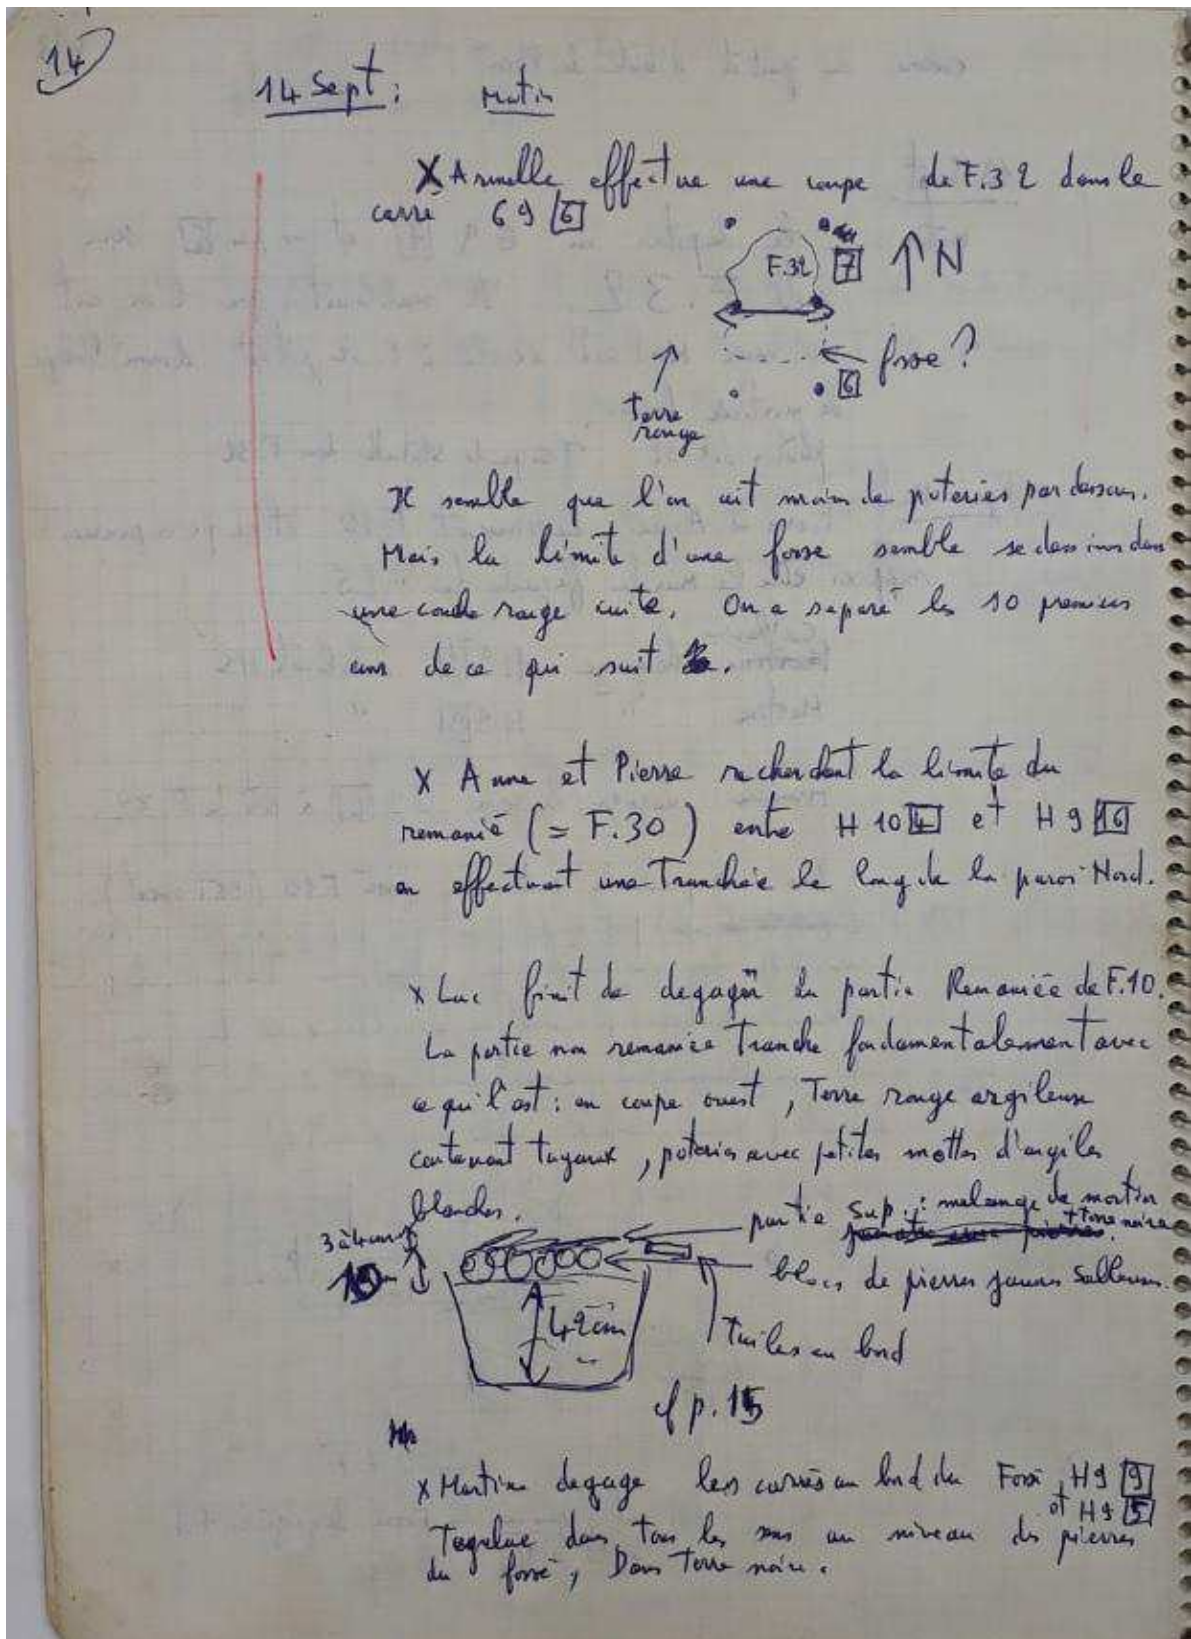 14
14 Sept : Matin
X Armelle effectue une coupe de F.32 dans le
carré G9 [6]
F.32 [7] ↑ N
← fosse ?
[6]
Terre
rouge
Il semble que l'on ait moins de poteries par dessous.
Mais la limite d'une fosse semble se dans
une couche rouge cuite. On a séparé les 10 premiers
cms de ce qui suit .
X Anne et Pierre recherchent la limite du
remanié (= F.30) entre H 10 [4] et H 9 [16]
en effectuant une Tranchée le long de la paroi Nord.
X Luc finit de dégager la partie Remaniée de F.10.
La partie non remaniée Tranche fondamentalement avec
ce qui l'est : en coupe ouest, Terre rouge argileuse
contenant tuyaux, poteries avec petites mottes d'argiles
blanches.
partie sup. : mélange de mortier
+ terre noire
3 à 4 cm
10 cm
blocs de pierres jaunes Salleuses.
42 cm
Tuiles au bord
cf p. 15
X Martine dégage les carrés au bord du Fossé, H9 [9]
et H9 [5]
Tegulae dans tous les sens au niveau des pierres
du fossé, Dans Terre noire.